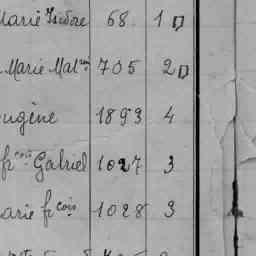 Marie Isidore 68 1
Marie Mat 705 2
Eugène 1893 4
frcois Gabriel 1027 3
Marie frcois 1028 3